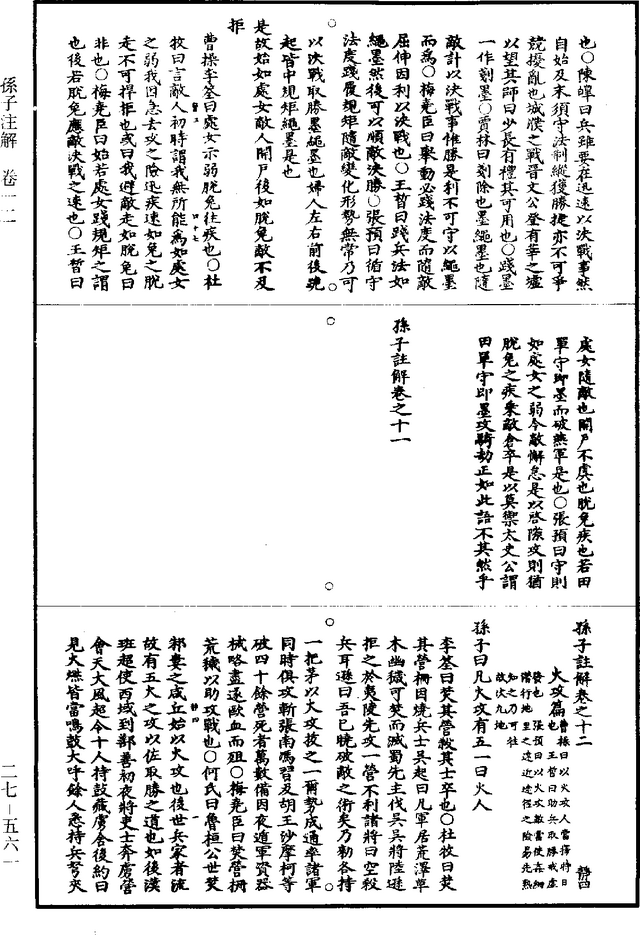 孫子註解 卷一二
二七－五六一
也○陳皥曰兵雖要在迅速以決戰事然
自始及末須守法制縱獲勝捷亦不可爭
競擾亂也城濮之戰晉文公登有莘之墟
以望其師曰少長有禮其可用也○踐墨
一作剗墨○賈林曰剗除也墨繩墨也隨
敵計以決戰事惟勝是利不可守以繩墨
而爲○梅堯臣曰舉動必踐法度而隨敵
屈伸因利以決戰也○王晳曰踐兵法如
繩墨然後可以順敵決勝○張預曰循守
法度踐履規矩隨敵變化形勢無常乃可
以決戰取勝墨繩墨也婦人左右前後跪
起皆中規矩繩墨是也
是故始如處女敵人開戶後如脫兔敵不及
拒
曹操李筌曰處女示弱脫兔往疾也○杜
牧曰言敵人初時謂我無所能爲如處女
之弱我因急去攻之險迅疾速如兔之脫
走不可捍拒也或曰我避敵走如脫兔曰
非也○梅堯臣曰始若處女踐規矩之謂
也後若脫兔應敵決戰之速也○王晳曰
處女隨敵也開戶不虞也脫兔疾也若田
單守卽墨而破燕軍是也○張預曰守則
如處女之弱令敵懈怠是以啓隙攻則猶
脫兔之疾乘敵倉卒是以莫禦太史公謂
田單守卽墨攻騎劫正如此語不其然乎
孫子註解卷之十一
孫子註解卷之十二
靜四
火攻篇
曹操曰以火攻人當擇時日
也 王晳曰助兵取勝戒虛
發也 張預曰以火攻敵當使姦細
潛行地里之遠近途徑之險易先熟
知之乃可往
故次九地
孫子曰凡火攻有五一曰火人
李筌曰焚其營殺其士卒也○杜牧曰焚
其營柵因燒兵士吳起曰凡軍居荒澤草
木幽穢可焚而滅蜀先主伐吳吳將陸遜
拒之於夷陵先攻一營不利諸將曰空殺
兵耳遜曰吾已曉破敵之術矣乃勑各持
一把茅以火攻拔之一爾勢成通率諸軍
同時俱攻斬張南馮習及胡王沙摩柯等
破四十餘營死者萬數備因夜遁軍資器
械略盡遂歐血而殂○梅堯臣曰焚營柵
荒穢以助攻戰也○何氏曰魯桓公世焚
邾婁之咸丘始以火攻也後世兵家者流
故有五火之攻以佐取勝之道也如後漢
班超使西域到鄯善初夜將吏士奔虜營
會天大風超令十人持鼓藏虜舍後約曰
見火然皆當鳴鼓大呼餘人悉持兵弩夾